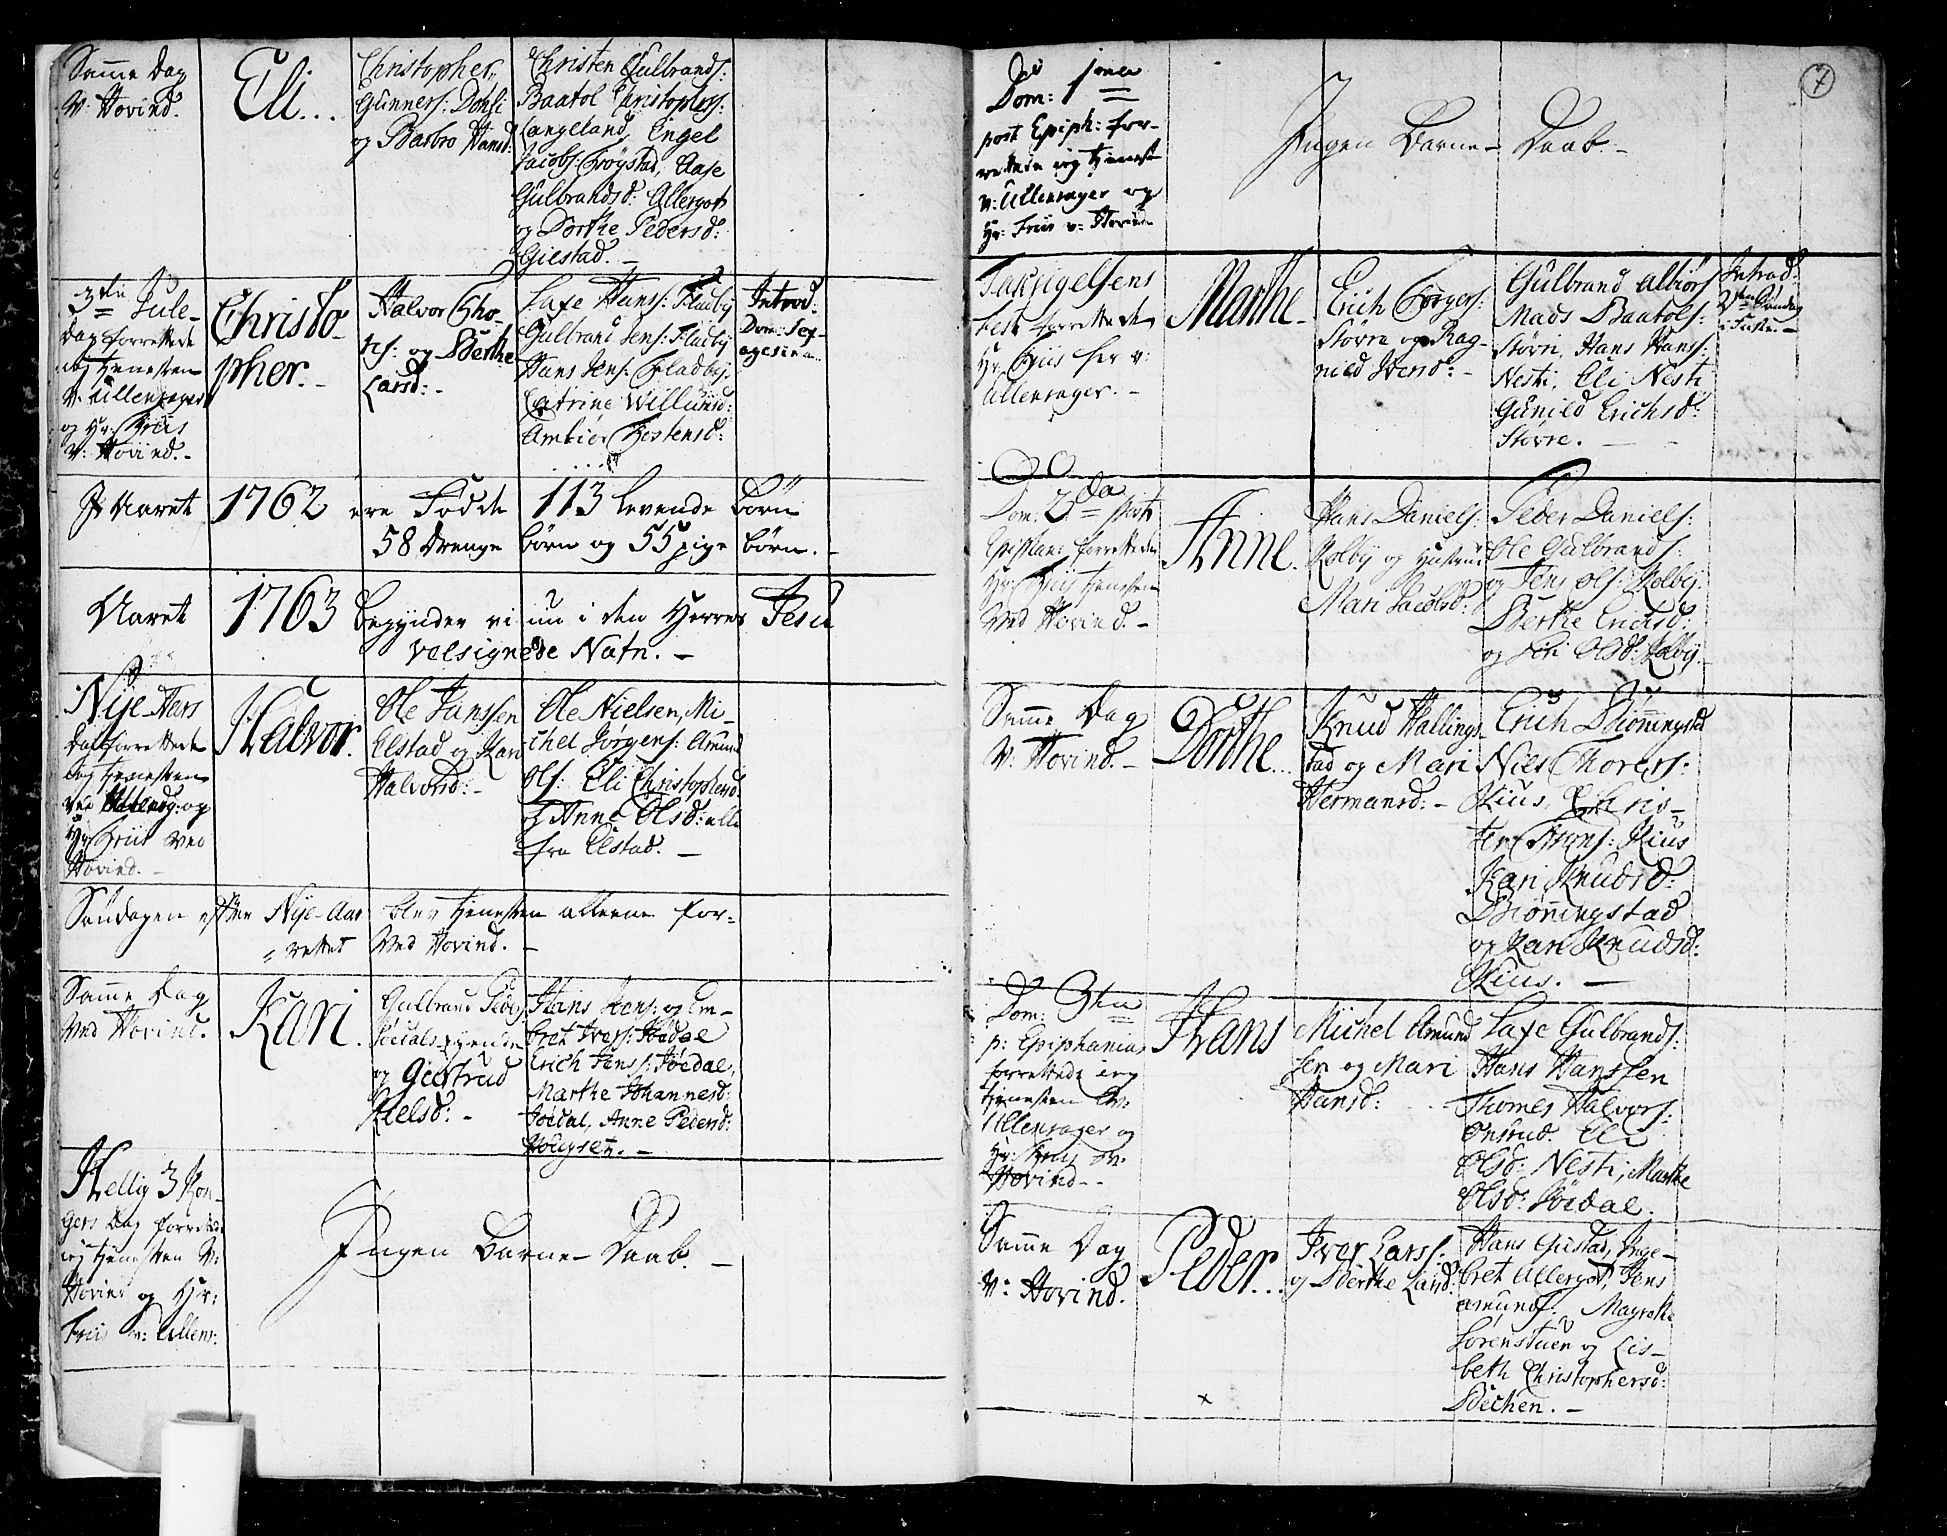 Samme Dag
v: Hovind.
Eli...
Christopher
Gunners: Dohli
og Barbro Hansd:
Christen Gulbrands:
Baatol Christophers:
Langeland, Engel
Jacobs: Trøgstad, Aase
Gulbrandsd: Allergot
og Dorthe Pedersd:
Giestad. –
3die Jule-
Dag forrettede
ieg tienesten
v: Ullensager
og Hr: Friis
v: Hovind. –
Christo-
pher. –
Halvor Tho-
rs: og Berthe
Larsd: –
Laxe Hans: Fladby
Gulbrand Jens: Fladby
Hans Jens: Fladby
Catrine Willumsd:
Ambiør Tostensd:
Introd:
Dom: Sex-
agesima.
J Aaret 1762 ere Fødte 113 levende Børn
58 Drenge børn og 55 pige børn. –
Aaret 1763 begynder vi nu i den Herres Jesu
velsignede Nafn. –
Nye Aars
Dag forrettede
ieg tienesten
ved Ullensag: og
Hr Friis ved
Hovind. –
Halvor.
Ole Janssen
Elstad og Kari
Halvorsd: –
Ole Nielsen, Mi-
chel Jørgens: Amund
Ols: Eli Christophersd:
og Anne Olsd: alle
fra Elstad. –
Søndagen efter Nye-Aar blev tienesten allene for-
= rettet ved Hovind. –
Samme Dag
ved Hovind.
Kari.
Gulbrand
og Giertrud
Nielsd: –
Hans Jens: og Em-
bret Ivers: Jødal
Erich Jens: Jødal,
Marthe Johannesd:
Jødal, Anne Pedersd:
Hougset. –
Hellig 3 Kon-
gers Dag forrettede
ieg tienesten v:
Hovind og Hr:
Friis v: Ullens:
Jngen Barne-Daab. –
7
Dom: 1ma
post Epiph: for-
rettede ieg tienest
v: Ullensager og
Hr: Friis v: Hovind
Jngen Barne-Daab. –
Taksigelsens
fest forrettede
Hr Friis her v:
Ullensager. –
Marthe.
Erich Torgers:
Støvre og Rag-
nild Iversd: –
Gulbrand Albiør
Mads Baatols:
Støvri, Hans Hans:
Nesti, Eli Nesti
Gunild Erichsd:
Støvre. –
Introd:
i Fasten –
Dom. 2da post
Epiphan: forrettede
Hr: Friis tienesten
ved Hovind. –
Anne.
Hans Daniels:
Kolby og Hustrue
Mari Jacobsd:
Peder Daniels:
Ole Gulbrands:
og Jens Ols: Kolby.
Berthe Erichsd:
og Siri Olsd: Kolby.
Samme Dag
v: Hovind. –
Dorthe...
Knud Hallings-
stad og Mari
Hermansd: –
Erich Biønningstad
Niels Thorers:
Kius, Chris-
ten Kius
Kari Knudsd:
Biønningstad
og Kari Knudsd:
Kius. –
Dom: 3tia
p: Epiphanias
forrettede ieg
tienesten v:
Ullensager og
Hr: Friis v:
Hovind. –
Hans
Michel Amund-
sen og Mari
Hansd: –
Laxe Gulbrands:
Hans Hanssen
Thomes Halvors:
Onsrud. Eli
Olsd: Nesti, Marthe
Olsd: Jødal.
Samme Dag
v: Hovind.
Peder...
Iver Lars:
og Berthe Larsd:
Hans Giestad, Inge-
bret Allergot, Jens
Amunds: Magrethe
Sørenstuen og Lis-
beth Christophersd:
Bechen. –